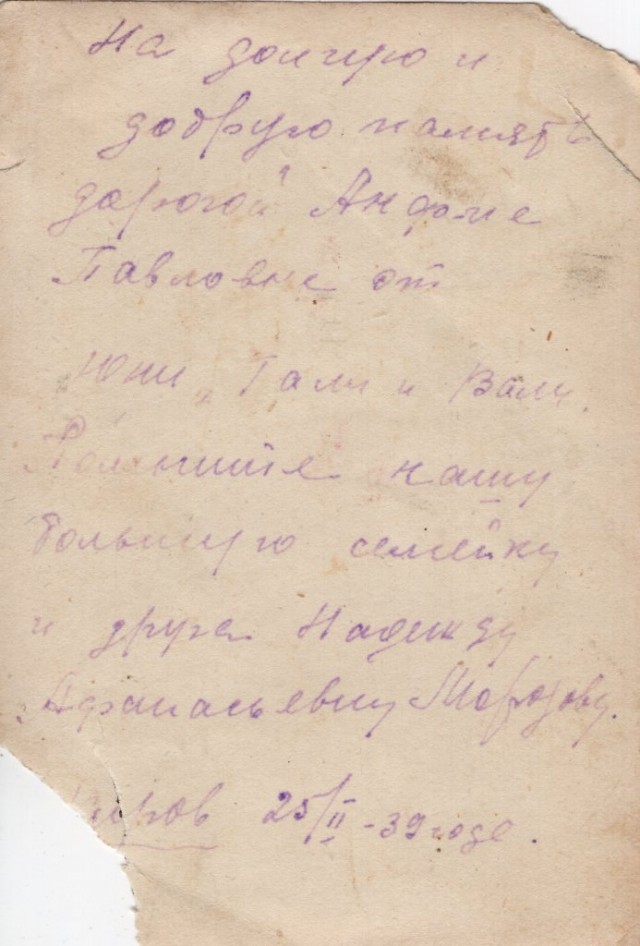 На долгую и
добрую память
дорогой
Павловне от
Юни, Гали и Вали.
Помните нашу
большую семейку
и друга Надежду
Афанасьевну Морозову.
25/II - 39 года.